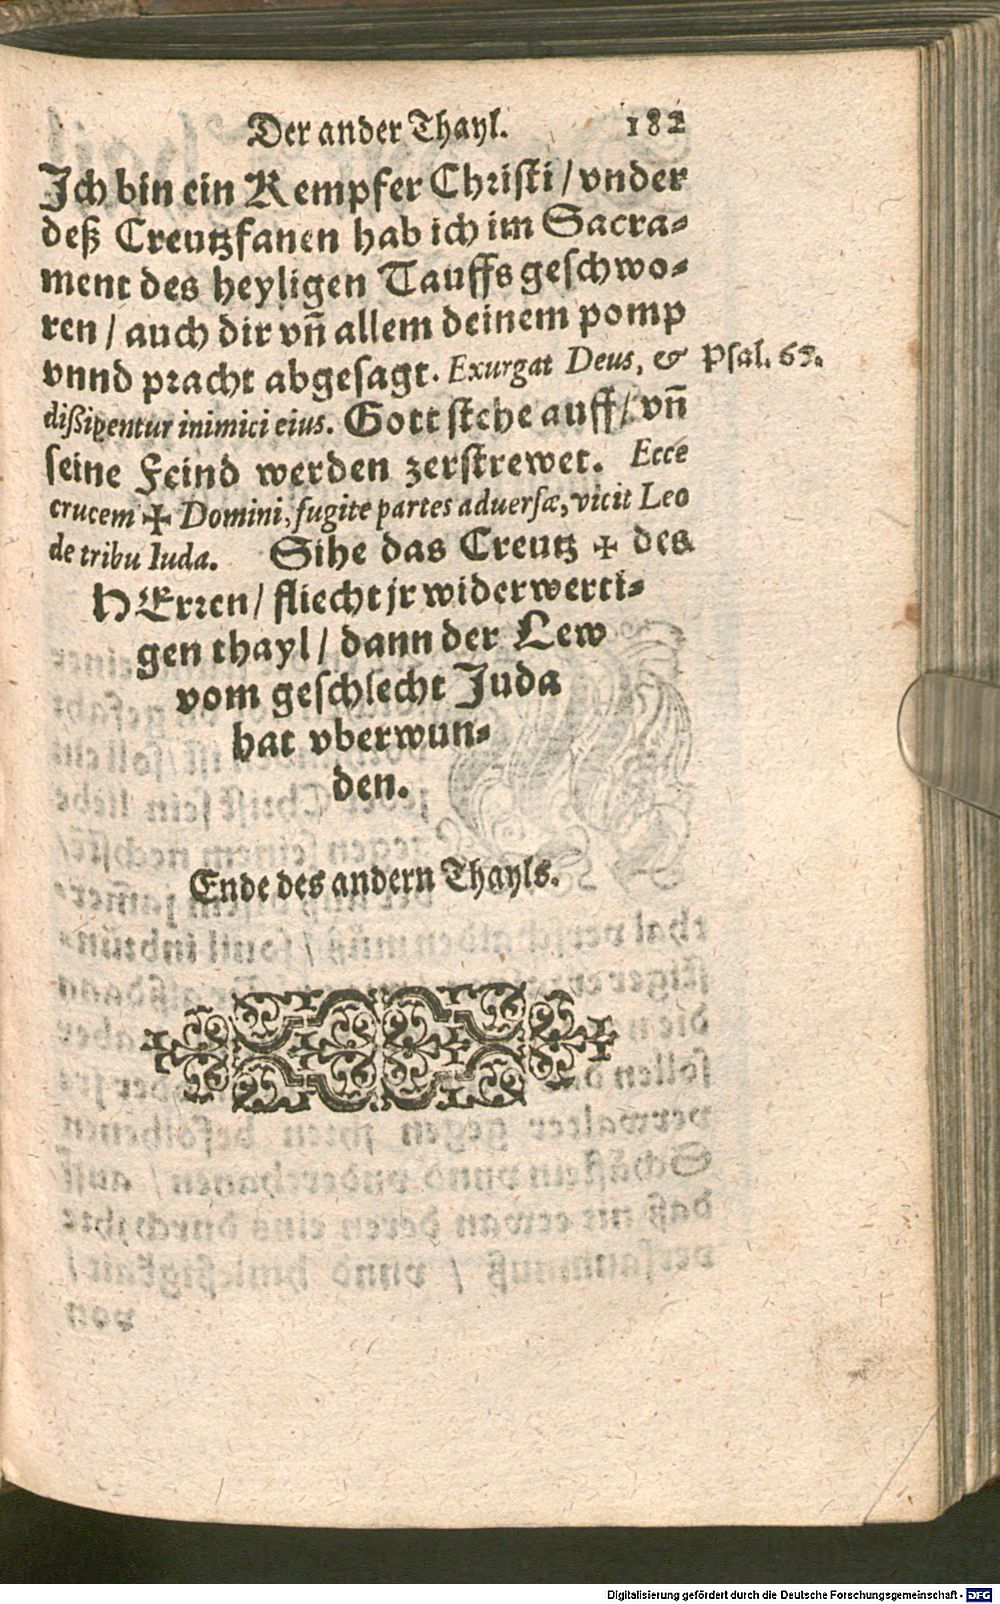 Der ander Thayl. 182
Ich bin ein Kempfer Christi / vnder
deß Creutzfanen hab ich im Sacra-
ment des heyligen Tauffs geschwo-
ren / auch dir vñ allem deinem pomp
vnnd pracht abgesagt. Exurgat Deus, & Psal. 67.
dißipentur inimici eius. Gott stehe auff / vñ
seine Feind werden zerstrewet. Ecce
crucem ✠ Domini, fugite partes aduersæ, vicit Leo
de tribu Iuda. Sihe das Creutz ✠ des
HErren / fliecht jr widerwerti-
gen thayl / dann der Lew
vom geschlecht Juda
hat vberwun-
den.
Ende des andern Thayls.
Digitalisierung gefördert durch die Deutsche Forschungsgemeinschaft - DFG